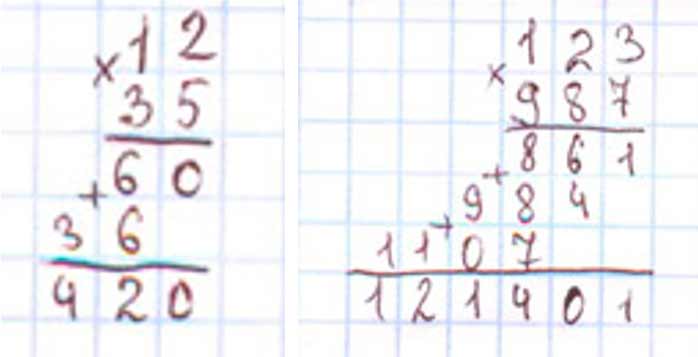 12
× 35
60
+
36
420
123
× 987
861
+
984
+
1107
121401